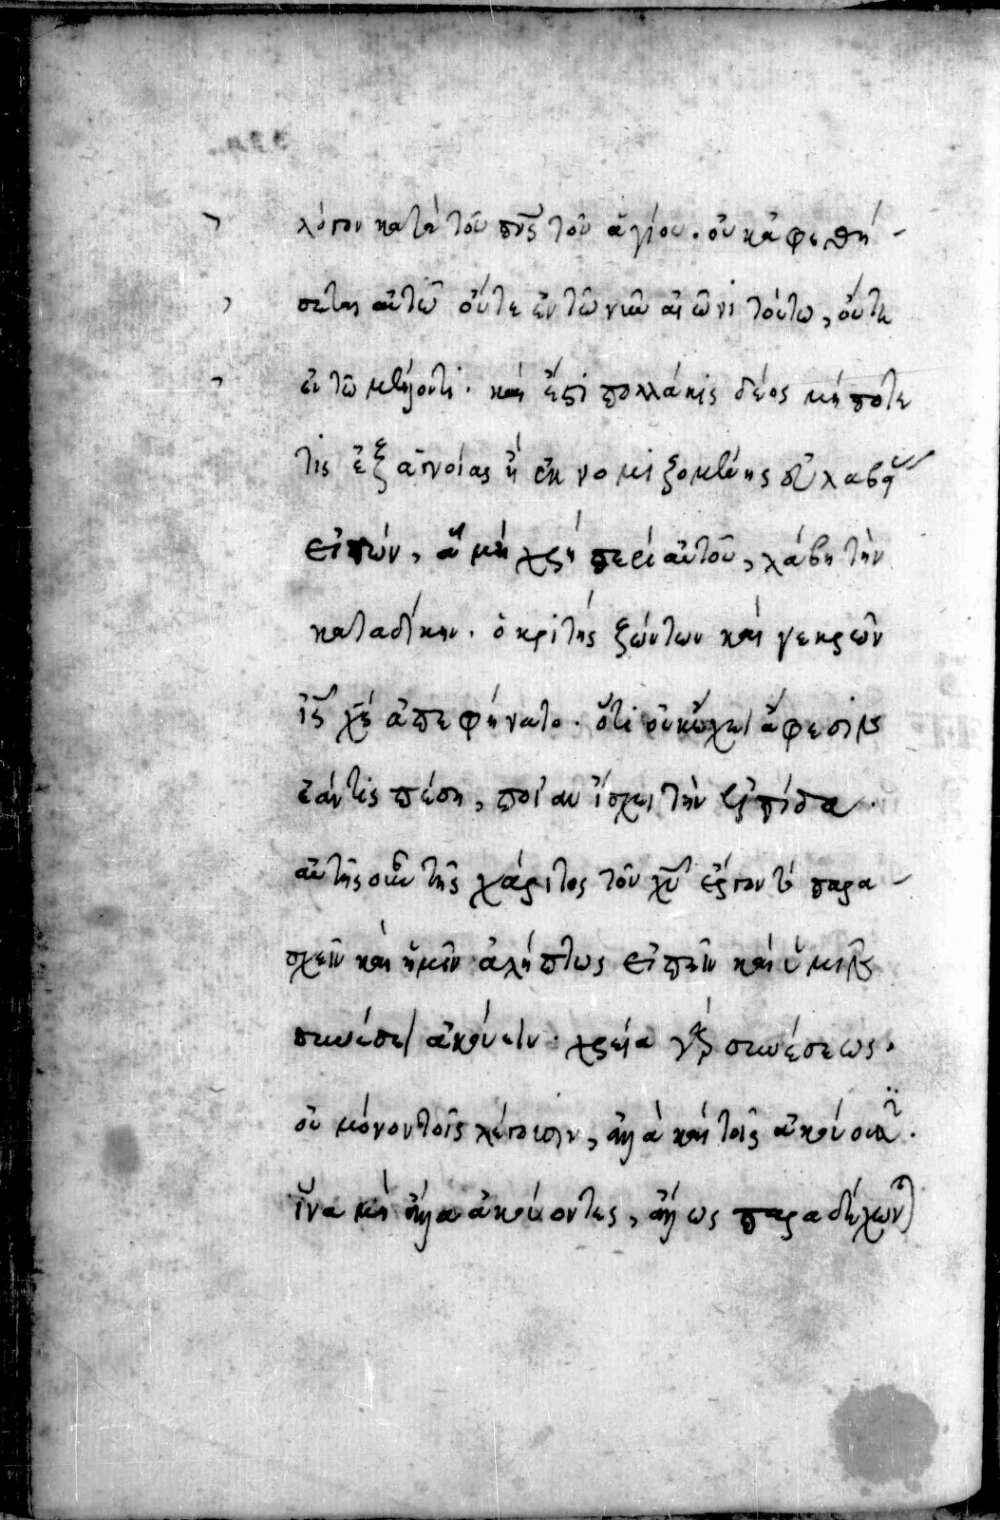 λόγον κατὰ τοῦ πνς τοῦ ἁγίου. οὐκ ἀφεθή-
σεται αὐτῶ οὔτε ἐν τῶ νῦν αἰῶνι τούτω, οὔτε
ἐν τῶ μέλλοντι. καὶ ἔστι πολλάκις δέος μή ποτε
τὶς ἐξ ἀγνοίας ἢ ἐκ νομιζομένης εὐλαβείας
εἰπών, ἃ μὴ χρὴ περὶ αὐτοῦ, λάβη τὴν
καταδίκην. ὁ κριτὴς ζώντων καὶ νεκρῶν
ις χς ἀπεφήνατο. ὅτι οὐκ ἔχει ἄφεσιν
ἐάν τις πέση, ποίαν ἴσχει τὴν ἐλπίδα.
αὐτῆς οὖν τῆς χάριτος τοῦ χυ ἔργον τὸ παρα-
σχεῖν καὶ ἡμῖν ἀλήπτως εἰπεῖν καὶ ὑμῖν
συνέσει ἀκούειν. χρεία γὰρ συνέσεως.
οὐ μόνον τοῖς λέγουσιν, ἀλλὰ καὶ τοῖς ἀκούουσιν.
ἵνα μὴ ἄλλα ἀκούοντες, ἄλλως παραδέχωνται